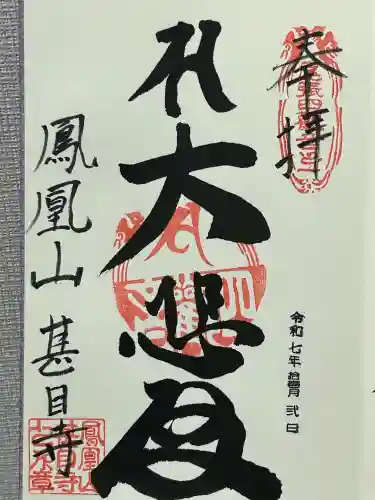 奉拝
大悲殿
令和七年拾壹月弐日
鳳凰山甚目寺